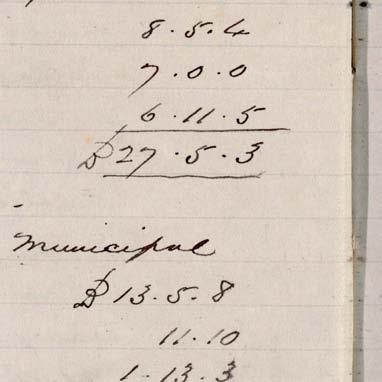 8.5.4
7.0.0
6.11.5
27.5.3
Municipal
13.5.8
11.10
1.13.3